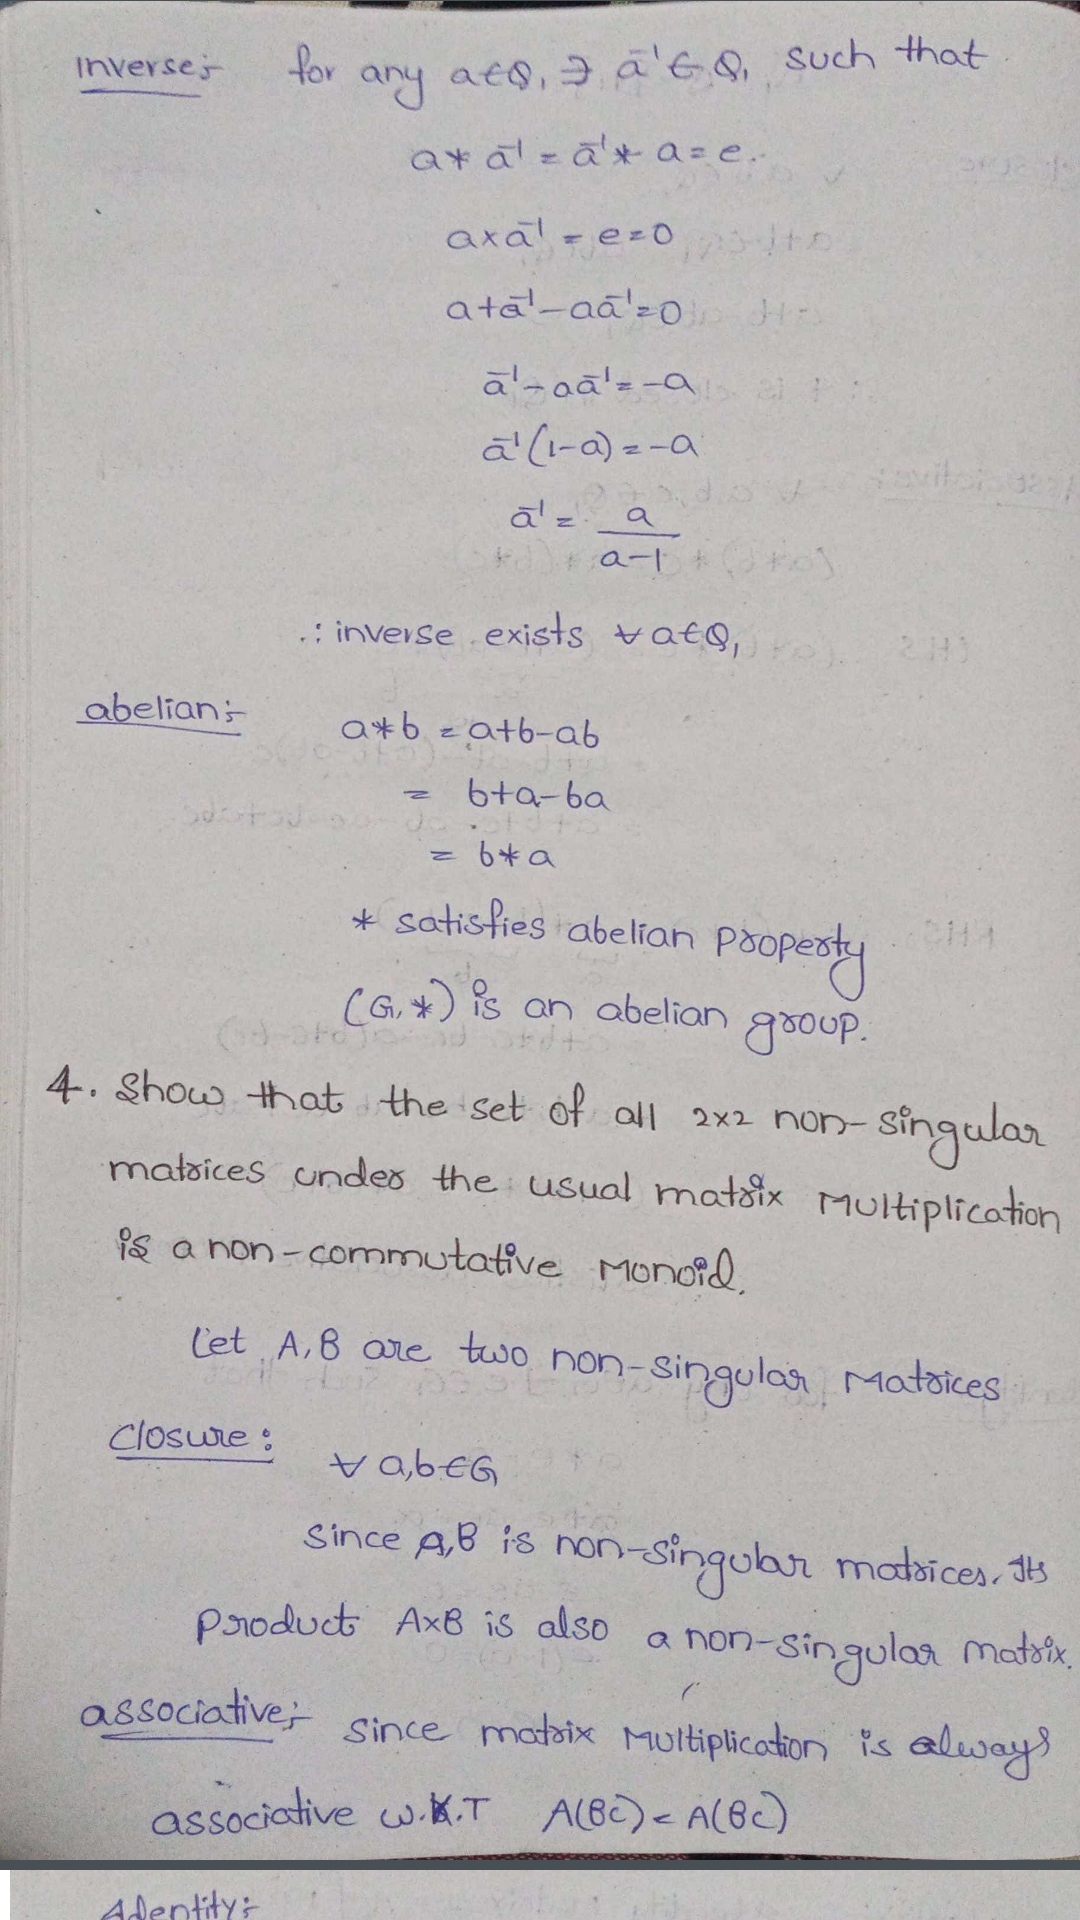 Inverse:- for any a∈Q₁ ∃ a⁻¹∈Q₁ such that
a* a⁻¹ = a⁻¹* a = e.
a×a⁻¹ = e=0
a+a⁻¹-aa⁻¹=0
a⁻¹-aa⁻¹=-a
a⁻¹(1-a)=-a
a⁻¹ = a
a-1
∴ inverse exists ∀ a∈Q₁
abelian:-
a*b = a+b-ab
= b+a-ba
= b*a
* satisfies abelian property
(G,*) is an abelian group.
4. Show that the set of all 2x2 non-singular
matrices under the usual matrix Multiplication
is a non-commutative Monoid.
Let A,B are two non-singular Matrices
Closure:
∀ a,b∈G
Since A,B is non-singular matrices. Its
product A×B is also a non-singular matrix.
associative:- since matrix Multiplication is always
associative w.k.T A(BC) = A(BC)
Identity:-